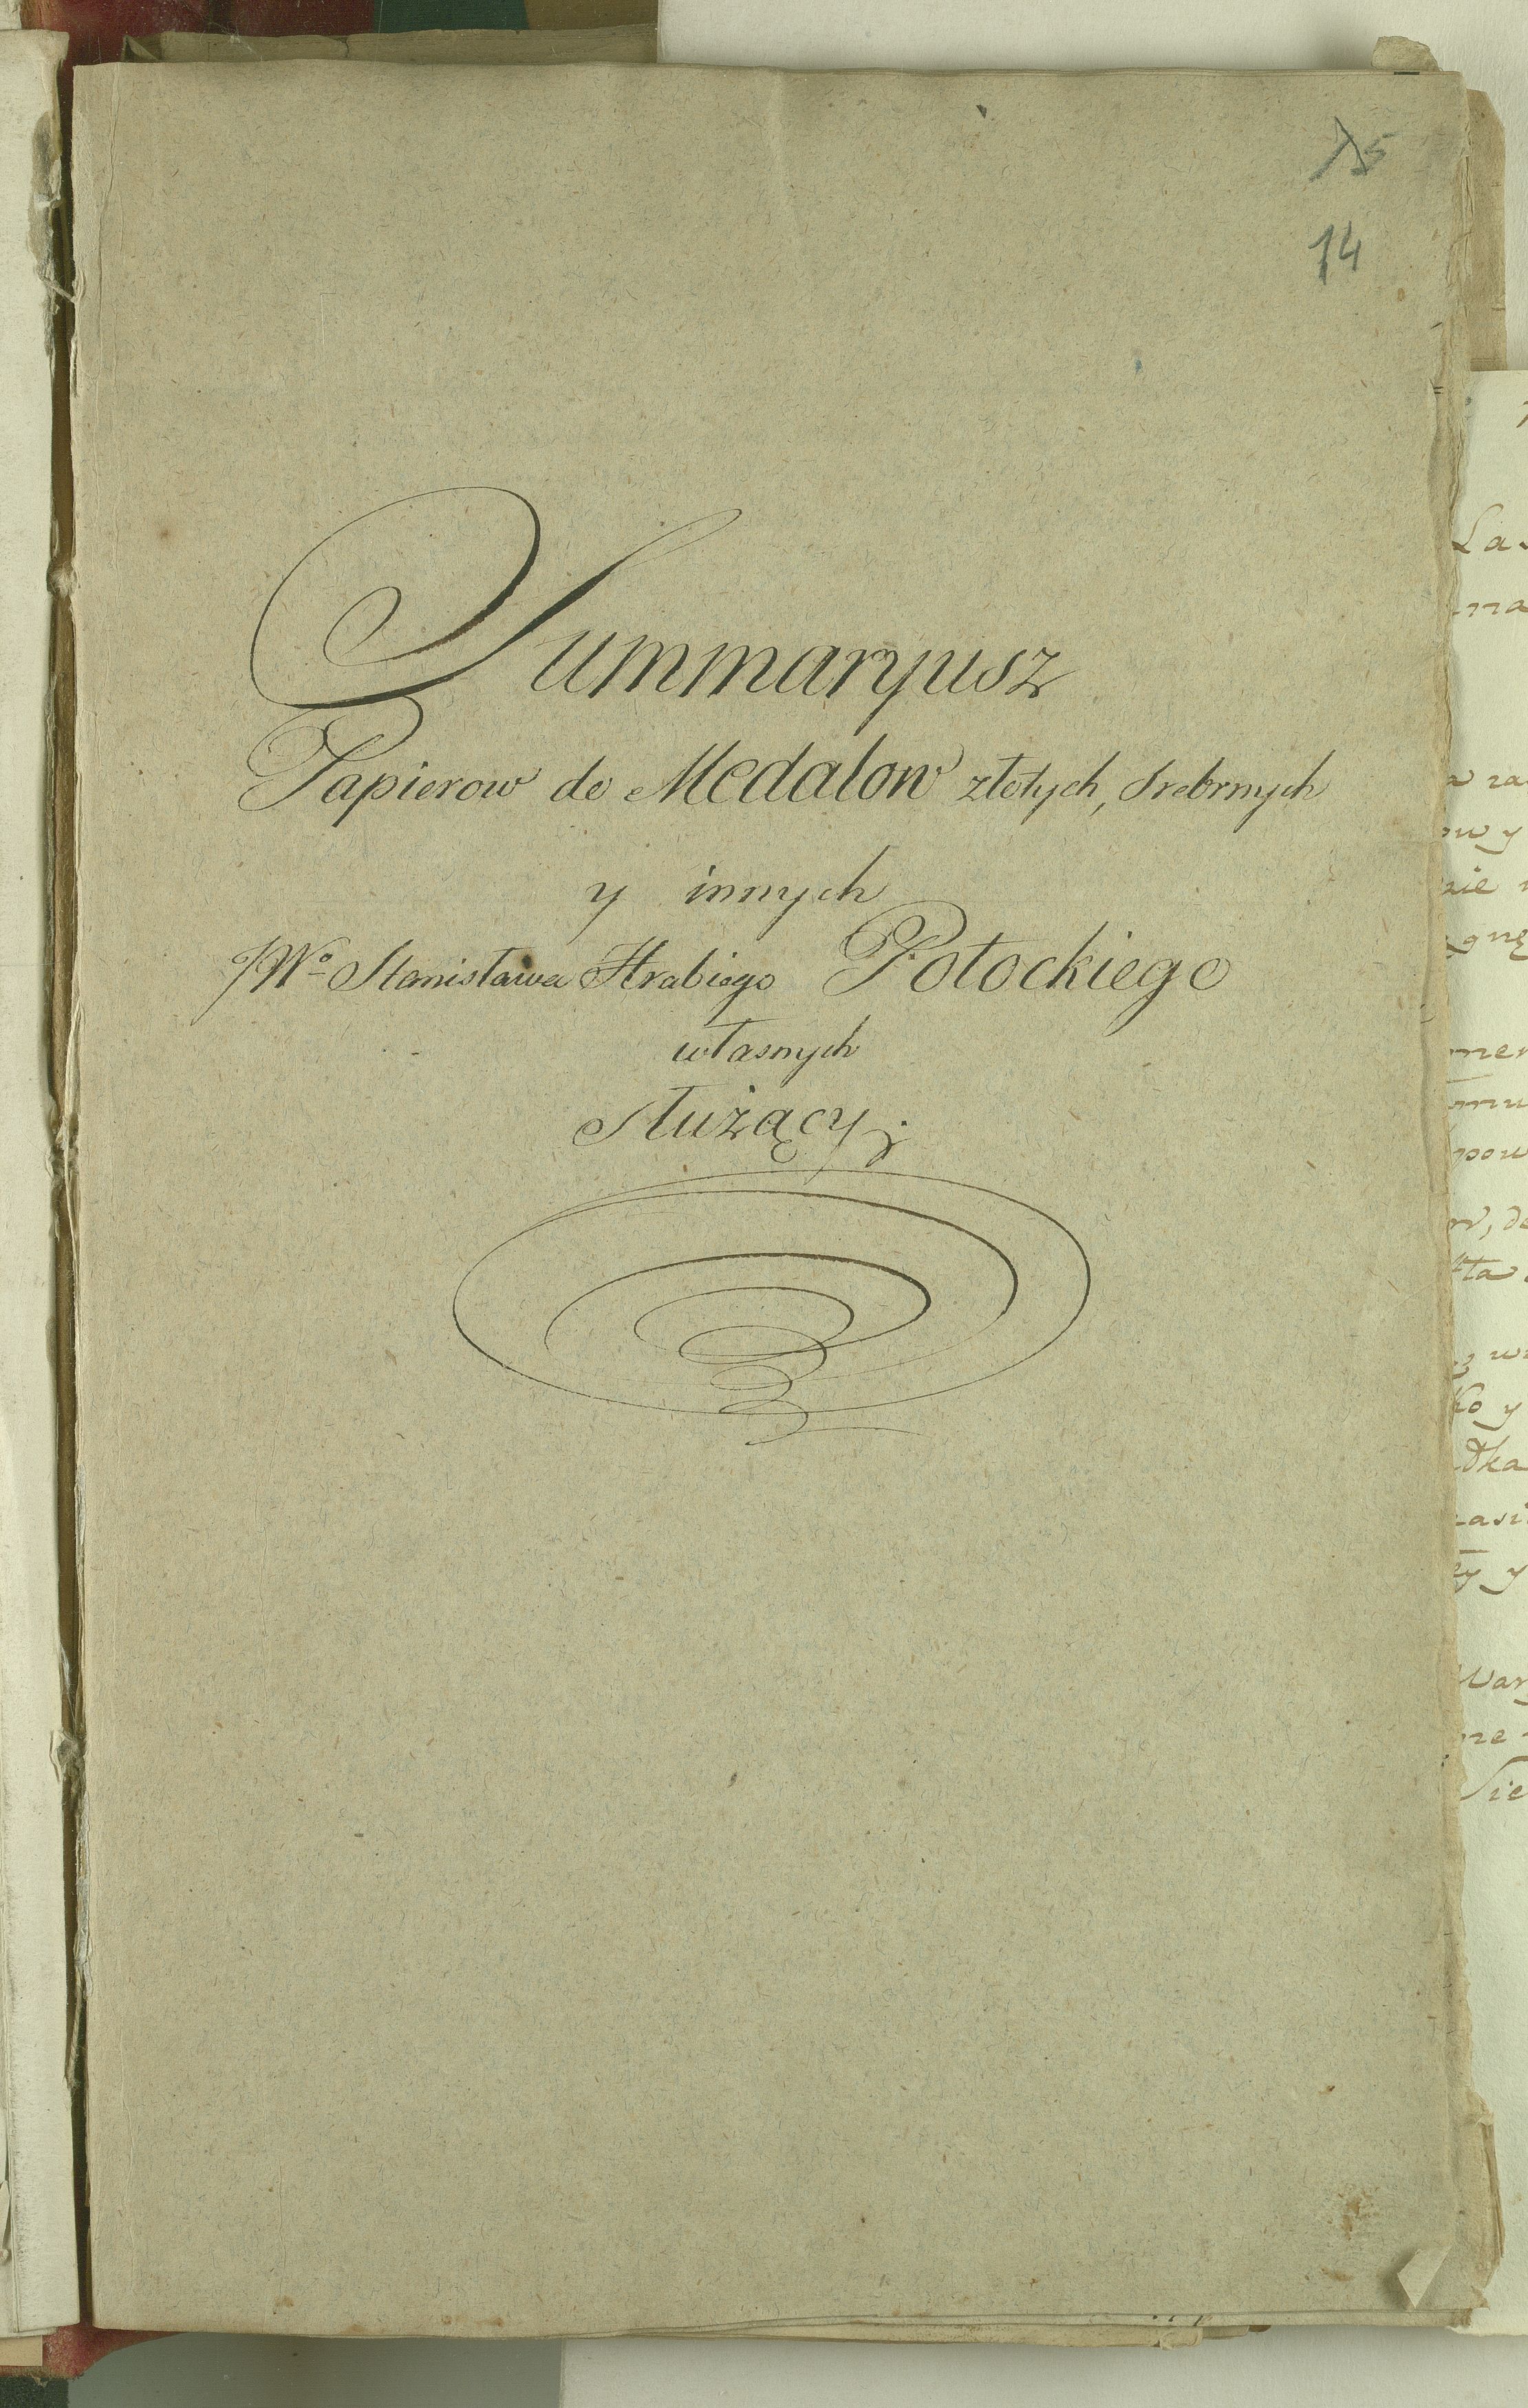 14
Summaryusz
Papierow do Medalow złotych, Srebrnych
y innych
JWo Stanisława Hrabiego Potockiego
własnych
Służący;